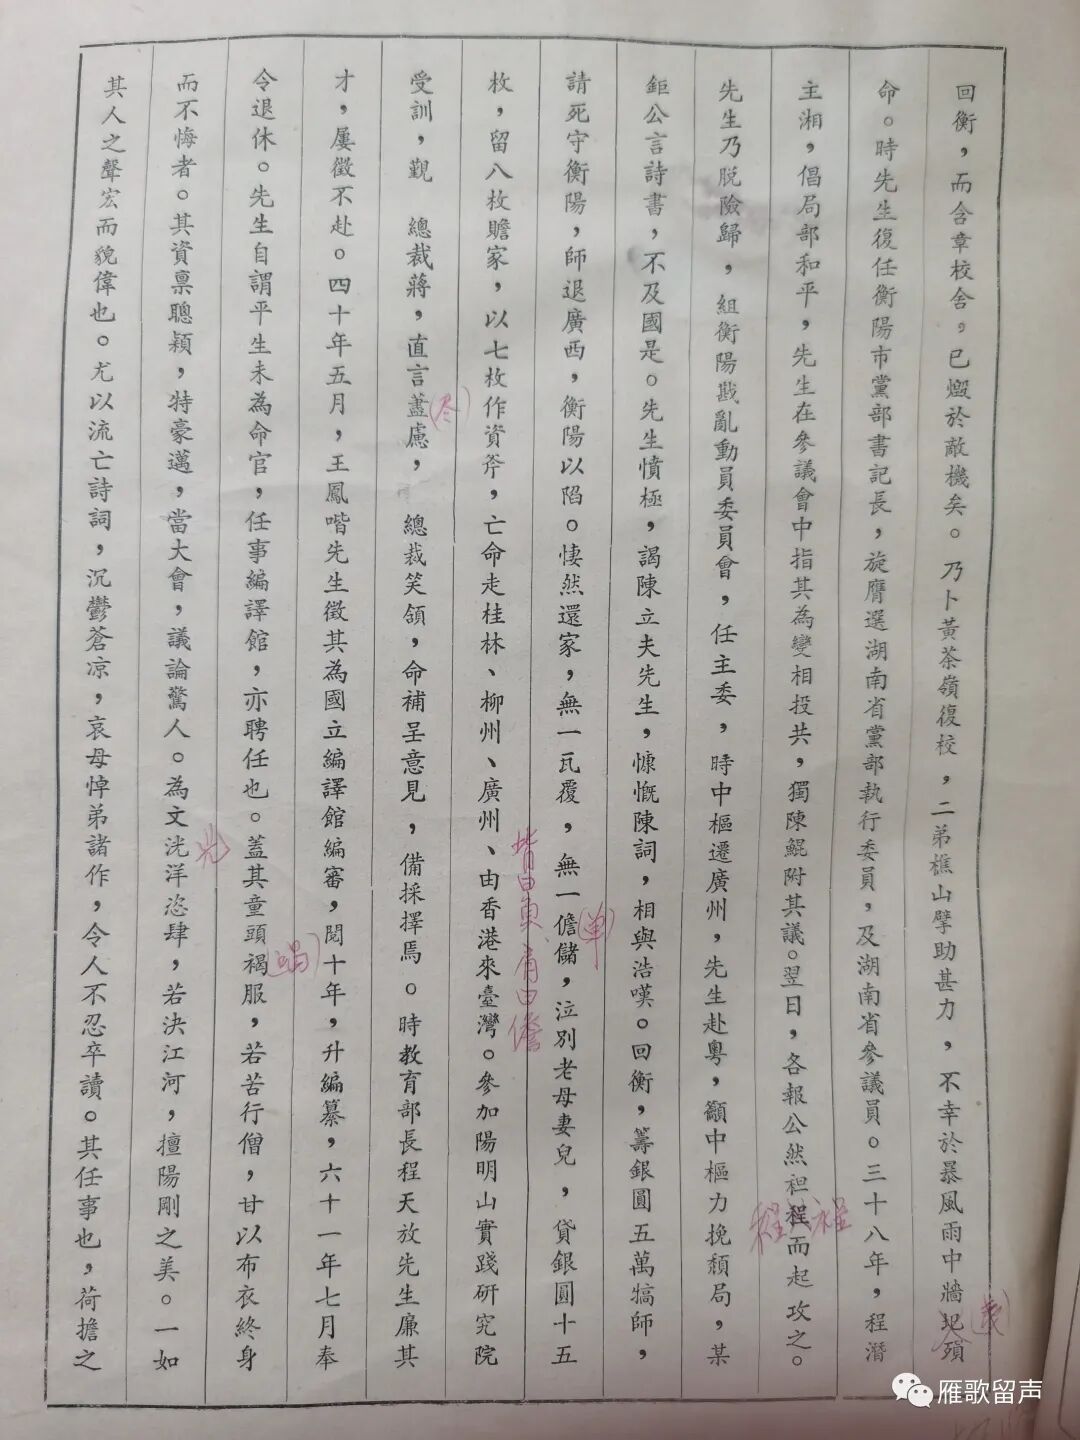 回衡，而含章校舍，已燬於敵機矣。乃卜黃茶嶺復校，二弟樵山擘助甚力，不幸於暴風雨中牆圯殞
命。時先生復任衡陽市黨部書記長，旋膺選湖南省黨部執行委員，及湖南省參議員。三十八年，程潛
主湘，倡局部和平，先生在參議會中指其為變相投共，獨陳鯤附其議。翌日，各報公然袒程而起攻之。
先生乃脫險歸，組衡陽戡亂動員委員會，任主委，時中樞遷廣州，先生赴粵，籲中樞力挽頹局，某
鉅公言詩書，不及國是。先生憤極，謁陳立夫先生，慷慨陳詞，相與浩嘆。回衡，籌銀圓五萬犒師，
請死守衡陽，師退廣西，衡陽以陷。悽然還家，無一瓦覆，無一儋儲，泣別老母妻兒，貸銀圓十五
枚，留八枚贍家，以七枚作資斧，亡命走桂林、柳州、廣州、由香港來臺灣。參加陽明山實踐研究院
受訓，覲　總裁蔣，直言藎慮，　總裁笑領，命補呈意見，備採擇焉。時教育部長程天放先生廉其
才，屢徵不赴。四十年五月，王鳳喈先生徵其為國立編譯館編審，閱十年，升編纂，六十一年七月奉
令退休。先生自謂平生未為命官，任事編譯館，亦聘任也。蓋其童頭褐服，若苦行僧，甘以布衣終身
而不悔者。其資稟聰穎，特豪邁，當大會，議論驚人。為文洸洋恣肆，若決江河，擅陽剛之美。一如
其人之聲宏而貌偉也。尤以流亡詩詞，沉鬱蒼涼，哀母悼弟諸作，令人不忍卒讀。其任事也，荷擔之
雁歌留声